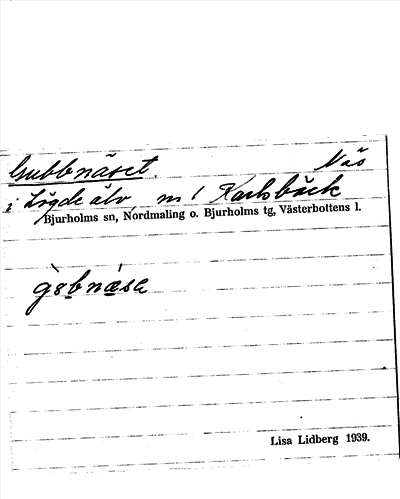 Gubbnäset. Näs
i Lögde älv m 1 Karlsbäck
Bjurholms sn, Nordmaling o. Bjurholms tg, Västerbottens l.
Lisa Lidberg 1939.